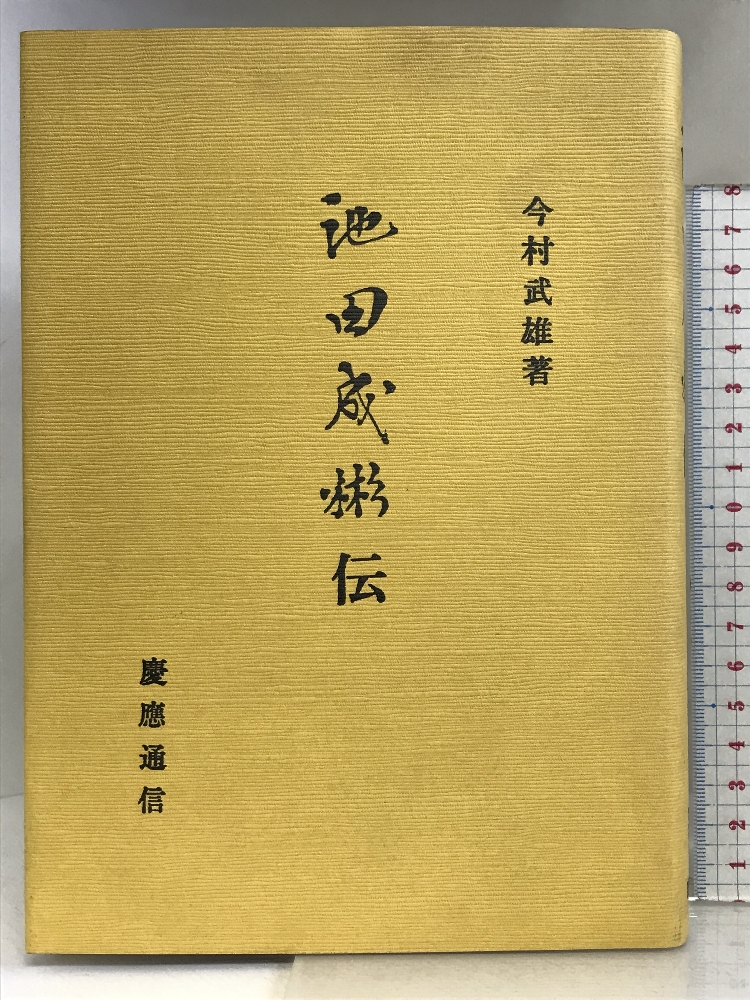 今村武雄著
池田成彬伝
慶應通信
8
7
6
5
4
3
2
1
0
9
8
7
6
5
4
3
2
1